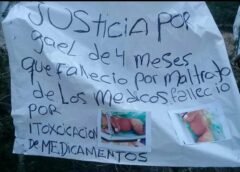 JUSTICIA POR
gael de 4 meses
que Fallecio por maltrato
de Los Medicos.fallecio
POR
ITOXCICACION
de MEDICAMENTOS